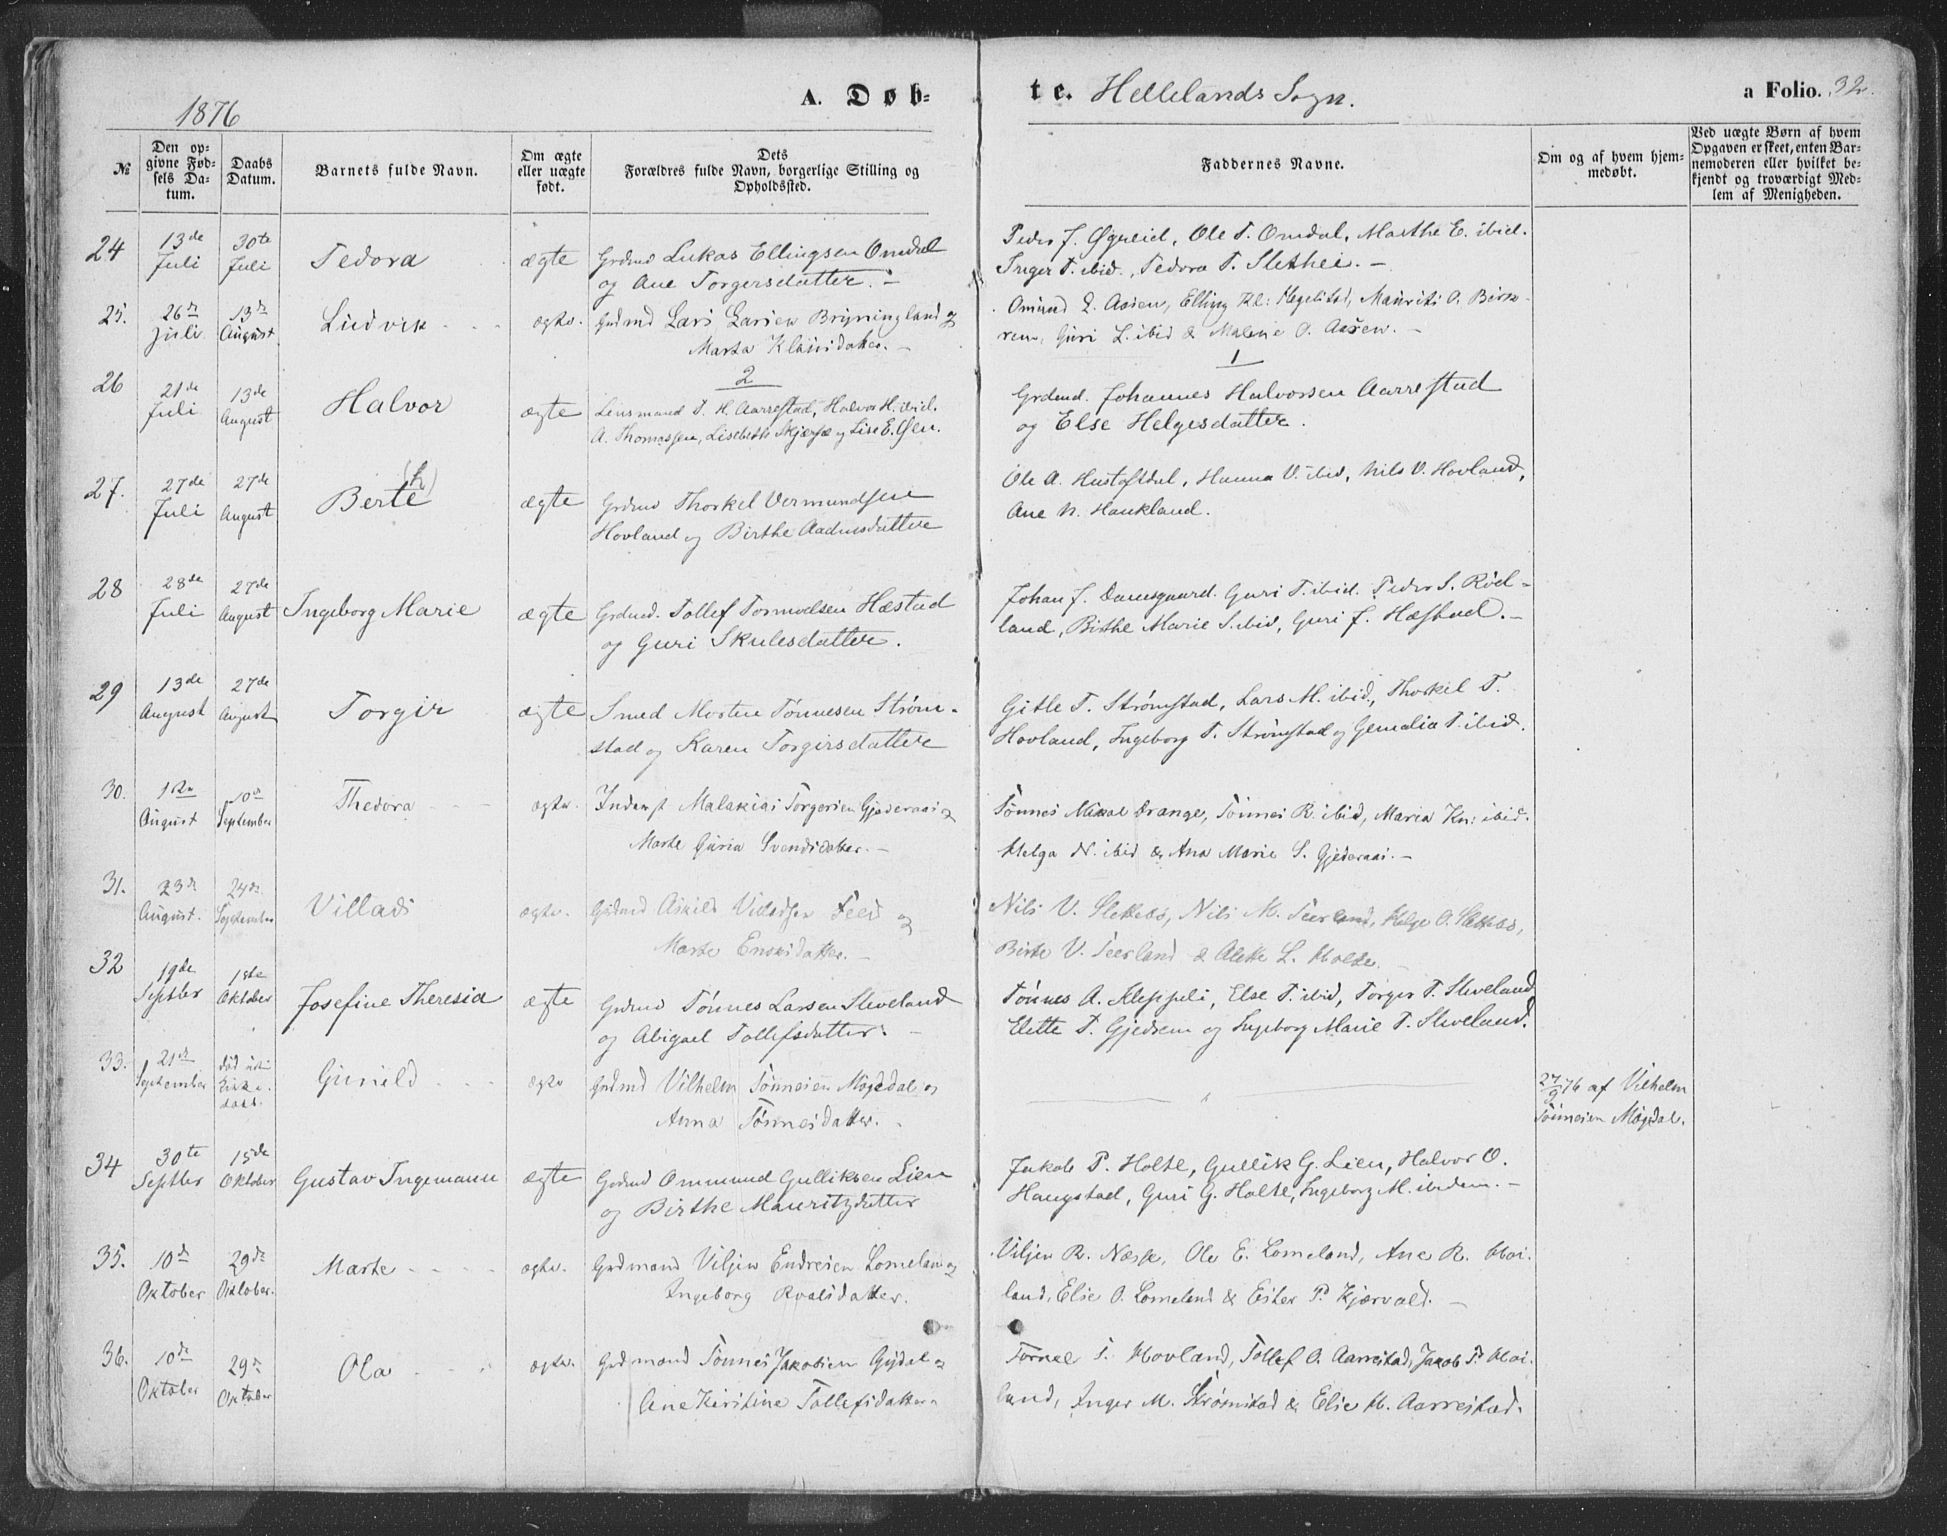 1876
A. Døb-
te. Hellelands Sogn.
a Folio. 32.
№
Den opgivne Fødsels Datum.
Daabs Datum.
Barnets fulde Navn.
Om ægte eller uægte født.
Dets Forældres fulde Navn, borgerlige Stilling og Opholdssted.
Faddernes Navne.
Om og af hvem hjemmedøbt.
Ved uægte Børn af hvem Opgaven er skeet, enten Barnemoderen eller hvilket bekjendt og troværdigt Medlem af Menigheden.
24 13de Juli 30te Juli Tedora ægte Grdmd Lukas Ellingsen Omdal
og Ane Torgersdatter. -
Peder J. Øgreid, Ole T. Omdal, Marthe E. ibid.
Inger T. ibid., Tedora T. Slethei. -
25. 26de Juli 13de August Ludvik ægte. Grdmd Lars Larsen Bryningland og
Marta Klausdatter. -
Omund L. Aasen, Elling Kl: Hegelstad, Maurits O. Birk-
rem, Guri L. ibid & Malene O. Aasen. -
26 21de Juli 13de August Halvor ægte
2
Lensmand T. H. Aarrestad, Halvor H. ibid.
A. Thomassen, Lisebeth Skjerpe og Lise E. Øen.
1
Grdmd. Johannes Halvorssen Aarrestad
og Else Helgesdatter.
27. 27de Juli 27de August Berte (h) ægte Grdmd Thorkel Vermundsen
Hovland og Birthe Aadnesdatter
Ole A. Hustoftdal, Hanna V. ibid, Nils V. Hovland,
Ane N. Haukland.
28 28de Juli 27de August Ingeborg Marie ægte Grdmd. Tollef Tormodsen Hæstad
og Guri Skulesdatter.
Johan J. Damsgaard. Guri T. ibid. Peder S. Röd-
land, Birthe Marie S. ibid, Guri J. Hæstad. -
29 13de August 27de August Torgir ægte Smed Morten Tönnesen Strøm-
stad og Karen Torgirsdatter
Gitle T. Strømstad, Lars M. ibid, Thorkel T.
Hovland, Ingeborg T. Strømstad og Gemalia T. ibid.
30. August 10de September Thedora ægte. Inderst Malakias Torgersen Gjederaas og
Marte Guria Svendsdatter. -
Tönnes Drange, Tönnes R. ibid, Maria Kn: ibid.
Helga N. ibid & Ana Marie S. Gjederaas. -
31. 23de August. 24de September Villads ægte. Grdmd Askild Villadsen Feed og
Marte Endrisdatter. -
Nils V. Slettebø, Nils M. Teerland, Helge O. Slettebø,
Birte V. Teerland & Alette L. Holte. -
32 19de Septbr 1ste Oktober Josefine Theresia ægte Grdmd Tönnes Larsen Sleveland
og Abigael Tollefsdatter. -
Tönnes A. Kleppeli, Else T. ibid, Torger T. Sleveland
Elette T. Gjedrem og Ingeborg Marie T. Sleveland.
33. 21de September død uden Kirkedaab. Gunild ægte Grdmd Vilhelm Tönnesen Mögedal og
Anna Tönnesdatter. -
27/9 76 af Vilhelm
Tönnesen Mögdal.
34 30te Septbr 15de Oktober Gustav Ingemann ægte Grdmd Ommund Gulliksen Lien
og Birthe Mauritzdatter
Jakob P. Holte, Gullik G. Lien, Halvor O.
Haugstad, Guri G. Holte, Ingeborg M. ibidem. -
35. 10de Oktober 29de Oktober. Marte ægte. Grdmand Viljen Endresen Lomeland og
Ingeborg Roaldsdatter.
Viljen R. Næse, Ole E. Lomeland, Ane R. Hoi-
land, Else O. Lomeland & Ester P. Kjervald. -
36. 10de Oktober 29de Oktober Ola ægte. Grdmand Tönnes Jakobsen Gydal og
Ane Kirstine Tollefsdatter
T. Hovland, Tollef O. Aarrestad, Jakob T. Hoi-
land, Inger M. Strömstad & Else H. Aarrestad.